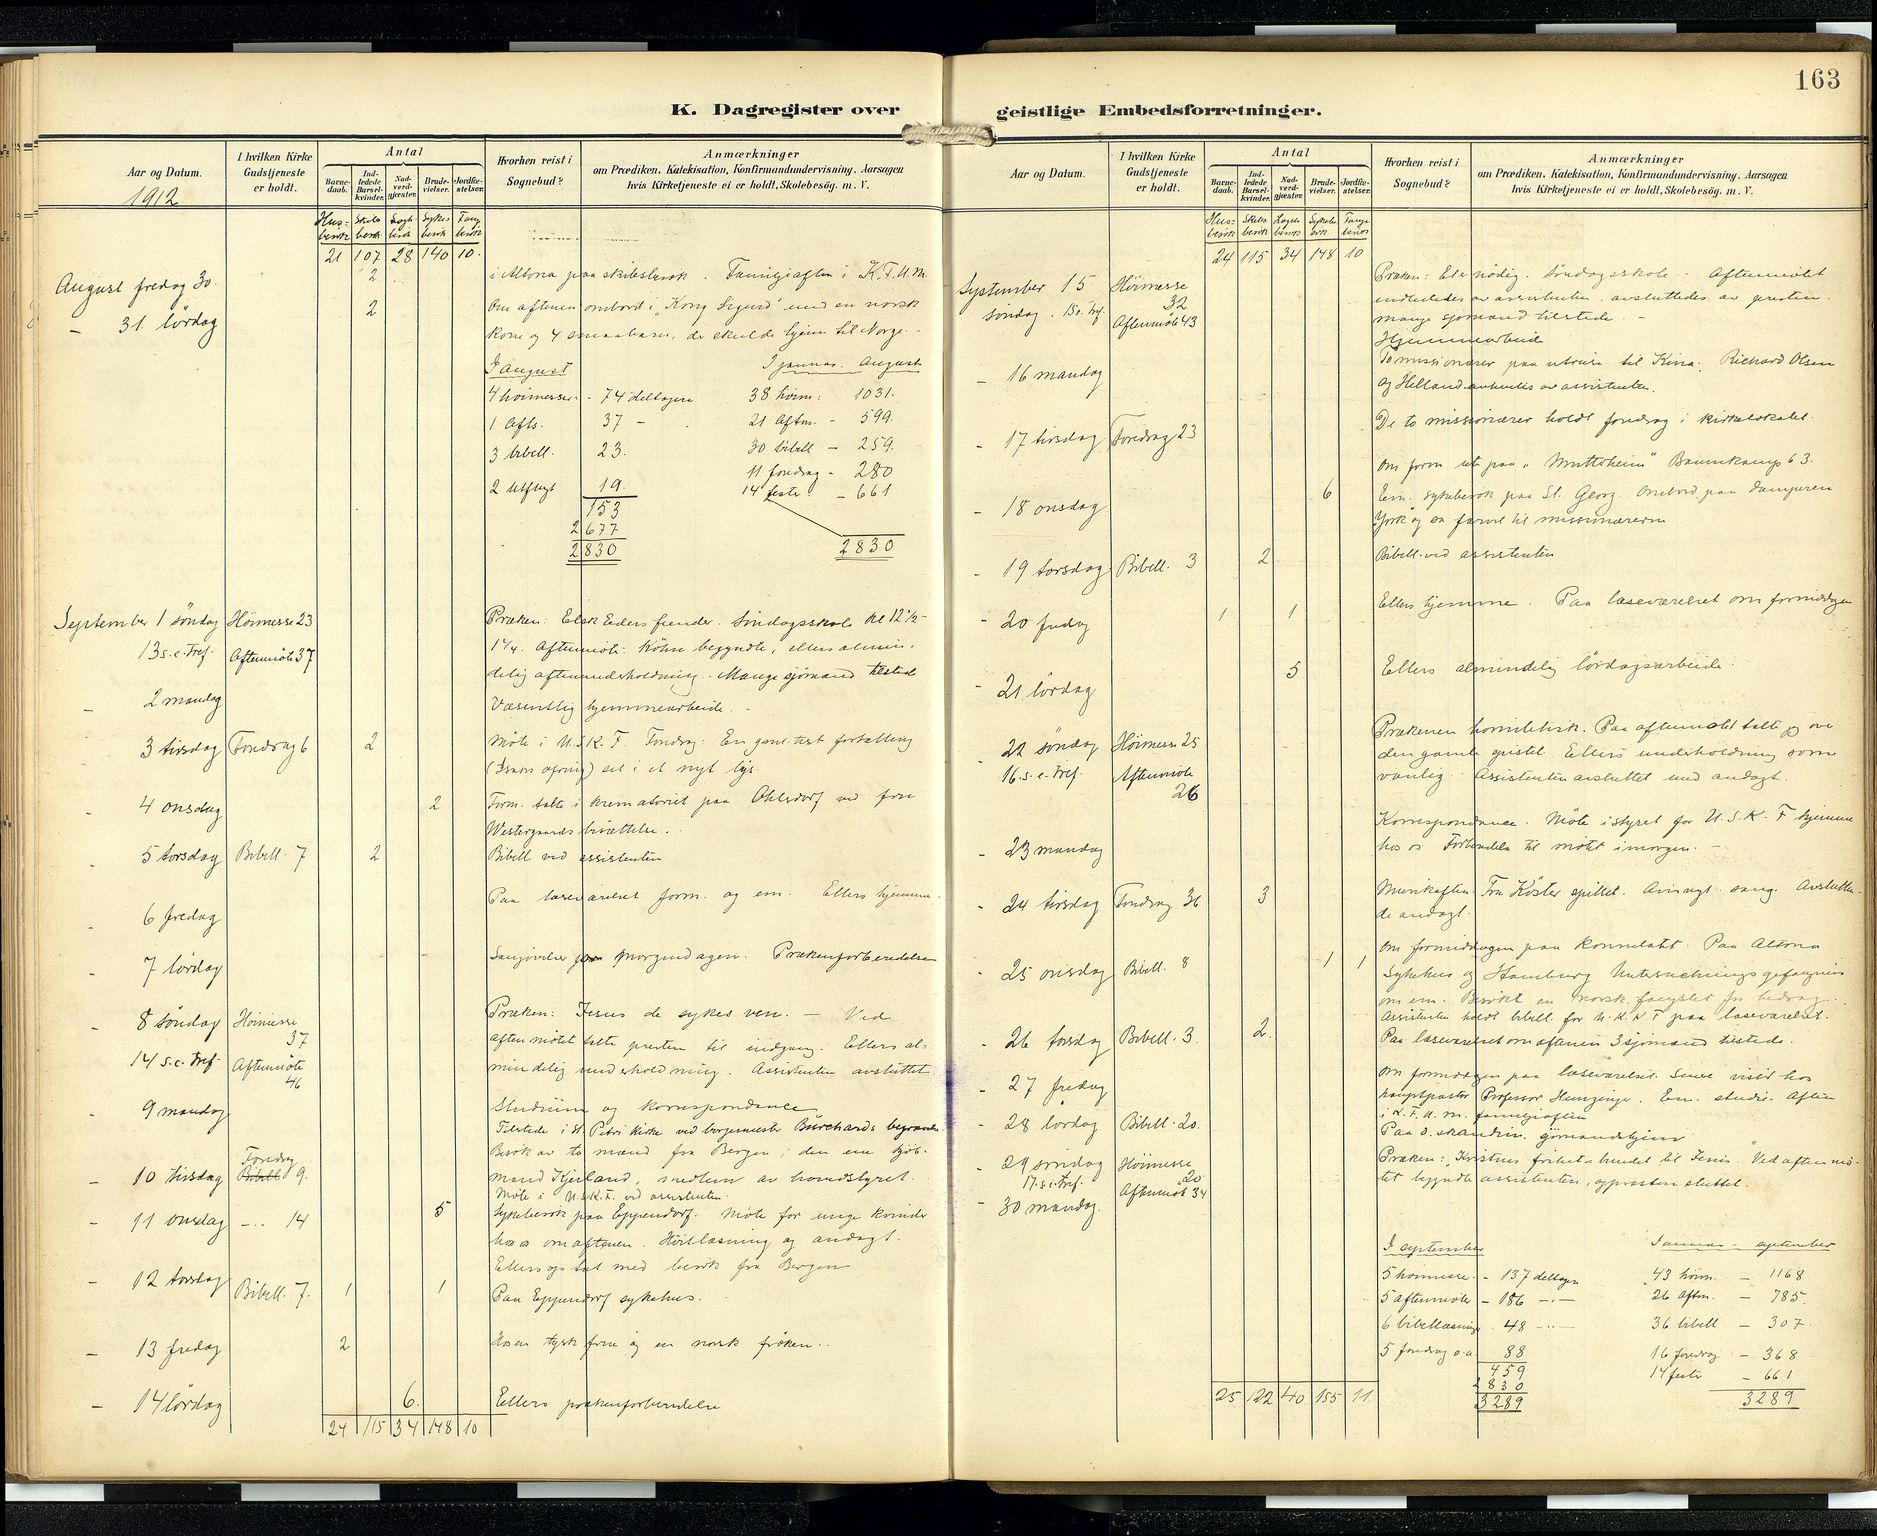 K. Dagregister over
Aar og Datum.
1912
I hvilken Kirke
Gudstjeneste
er holdt.
Antal
Barne-
daab.
Ind-
ledede
Barsel-
kvinder.
Nad-
verd-
gjæster.
Brude-
vielser.
Jordfæ-
stelser.
Hvorhen reist i
Sognebud?
Anmærkninger
om Prædiken, Katekisation, Konfirmandundervisning, Aarsagen
hvis Kirketjeneste ei er holdt, Skolebesøg. m. V.
Hus-
besøk
Skibs
besøk
Syke
besøk
Fang
besøk
21 107 28 140 10.
August fredag 30. 2 i Altona paa skibsbesøk. Familjeaften i K.F.U.M.
- 31 lördag 2 Om aftenen ombord i "Kong Sigurd" med en norsk
kone og 4 smaabarn, der skulde hjem til Norge.
I august. I januar. August
4 høimesser - 74 deltagere 38 høim: 1031.
1 Aft. 37 - 21 Aftm. - 599.
3 bibell. 23. 30 bibell - 259.
11 foredrag - 280
2 Utflugt 19. 14 feste - 661
153
2677
2830 2830
September 1 söndag Höimesse 23 Præken: Elsk Eders fiender. Söndagsskole kl 12½-
13 s.e.Tref. Aftenmöte 37 1¼. Aftenmöte: begyndte, ellers almin-
delig aftenunderholdning. Mange sjömænd tilstede
- 2 mandag Væsentlig hjemmearbeide.
3 tirsdag Foredrag 6 2 Möte i U.S.K.F. Foredrag: En gml. test. fortælling
(Isaks ofring) set i et nyt lys.
- 4 onsdag 2 Form. talte i krematoriet paa Ohlsdorf ved fru
Westergaards bisættelse.
- 5 torsdag Bibell. 7 2 Bibell ved assistenten
- 6 fredag Paa læseværelset form. og em. Ellers hjemme.
- 7 lördag morgendagen. Prækenforberedelse
- 8 söndag Höimesse 37 Præken: Jesus de sykes ven. - Ved
14 s.e.Tref. Aftenmöte 46 aftenmötet talte presten til indgang. Ellers al-
mindelig underholdning. Assistenten avsluttet
- 9 mandag Studium og korrespondance
Tilstede i St. Petri kirke ved borgermester Burchards begravelse
- 10 tirsdag Foredrag 9. Besök av to mænd fra Bergen; den ene sjö-
mand Kjeiland, medlem av hovedstyret.
Möte i U.S.K.F. ved assistenten.
- 11 onsdag -.- 14 5 Sykebesök paa Eppendorf. Möte for unge kvinder
hos os om aftenen. Höitlæsning og andagt.
- 12 torsdag Bibell. 7. 1 1 Ellers optat med besök fra Bergen
Paa Eppendorf sykehus.
- 13 fredag 2 Hos en tysk frue og en norsk fröken.
- 14 lördag 6. Ellers prækenforberedelse
24 115 34 148 10
163
geistlige Embedsforretninger.
Aar og Datum.
I hvilken Kirke
Gudstjeneste
er holdt.
Antal
Barne-
daab.
Ind-
ledede
Barsel-
kvinder.
Nad-
verd-
gjæster.
Brude-
vielser.
Jordfæ-
stelser.
Hvorhen reist i
Sognebud?
Anmærkninger
om Prædiken, Katekisation, Konfirmandundervisning, Aarsagen
hvis Kirketjeneste ei er holdt, Skolebesøg. m. V.
Hus-
besøk
Skibs
besøk
Syke
besøk
Fange
besøk
24 115 34 148 10
September 15 Höimesse 32 Præken: Et er nödig. Söndagsskole - Aftenmötet
söndag. 15 s.Tref. Aftenmöte 43 indlededes av assistenten, avsluttedes av presten.
mange sjömænd tilstede. -
Hjemmearbeide
- 16 mandag To missionærer paa utreise til Kina, Richard Olsen
og Helland avhentes av assistenten.
- 17 tirsdag Foredrag 23 De to missionærer holdt foredrag i kirkelokalet.
Om form ute paa "Muttsheim" Baumkamp 63.
- 18 onsdag 6 Em. sykebesök paa St. Georg. Ombord paa damperen
"York" og sa farvel til missionærerne
- 19 torsdag Bibell. 3 2 Bibell. ved assistenten
- 20 fredag 1 1 Ellers hjemme. Paa læseværelset om formiddagen
- 21 lördag 5 Ellers almindelig lördagsarbeide.
- 22 söndag Höimesse 25 Prækenen homiletisk. Paa aftenmötet talte jeg ove
16. s.e.Tref. Aftenmöte 26 den gamle epistel. Ellers underholdning som
vanlig. Assistenten avsluttet med andagt.
- 23 mandag Korrespondance. Möte i styret for U.S.K.F. hjemme
hos os. Forberedelse til mötet imorgen. -
- 24 tirsdag Foredrag 36 3 Musikaften. Fru Köster spillet. Avisnyt. sang. Avslutten-
de andagt.
- 25 onsdag Bibell. 8 1 1 Om formiddagen paa konsulatet. Paa Altona
Sykehus og Hamburg Untersuchungsgefängnis
om em. Besökt en norsk fængslet for bedrag.
Assistenten holdt bibell. for U.K.K.F paa læseværelset.
- 26 torsdag Bibell. 3. 2. Paa læseværelset om aftenen 3 sjömænd tilstede.
- 27 fredag Om formiddagen paa læseværelset. Senere visit hos
hauptpastor Professor Hunzinger. Em. studie. Aften
i K.F.U.M. familjeaften
- 28 lördag Bibell. 20. Paa d. skandin. sjömandshjem
- 29 söndag Höimesse 20 Præken: Kristnes frihet er bundet til Jesus. Ved aftenmö-
17. s.e.Tref. Aftenmöt 34 tet begyndte assistenten, og presten sluttet.
- 30 mandag.
I september Januar - september
5 höimesse - 137 deltagere 43 höim. - 1168
5 aftenmöte - 186 -.- 26 aftm. - 785.
6 bibellæsninge - 48 -.- 36 bibell - 307.
5 foredrag o.a. 88 16 foredrag - 368
459 14 feste - 661
2830
25 122 40 155 11. 3289 3289